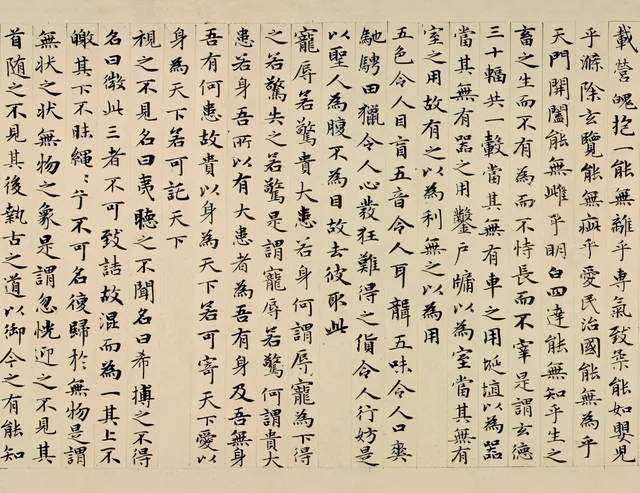 載營魄抱一能無離乎專氣致柔能如嬰兒
乎滌除玄覽能無疵乎愛民治國能無為乎
天門開闔能無雌乎明白四達能無知乎生之
畜之生而不有為而不恃長而不宰是謂玄德
三十輻共一轂當其無有車之用埏埴以為器
當其無有器之用鑿戶牖以為室當其無有
室之用故有之以為利無之以為用
五色令人目盲五音令人耳聾五味令人口爽
馳騁田獵令人心發狂難得之貨令人行妨是
以聖人為腹不為目故去彼取此
寵辱若驚貴大患若身何謂辱寵為下得
之若驚失之若驚是謂寵辱若驚何謂貴大
患若身吾所以有大患者為吾有身及吾無身
吾有何患故貴以身為天下若可寄天下愛以
身為天下若可託天下
視之不見名曰夷聽之不聞名曰希搏之不得
名曰微此三者不可致詰故混而為一其上不
皦其下不昧繩〻兮不可名復歸於無物是謂
無狀之狀無物之象是謂忽恍迎之不見其
首隨之不見其後執古之道以御今之有能知